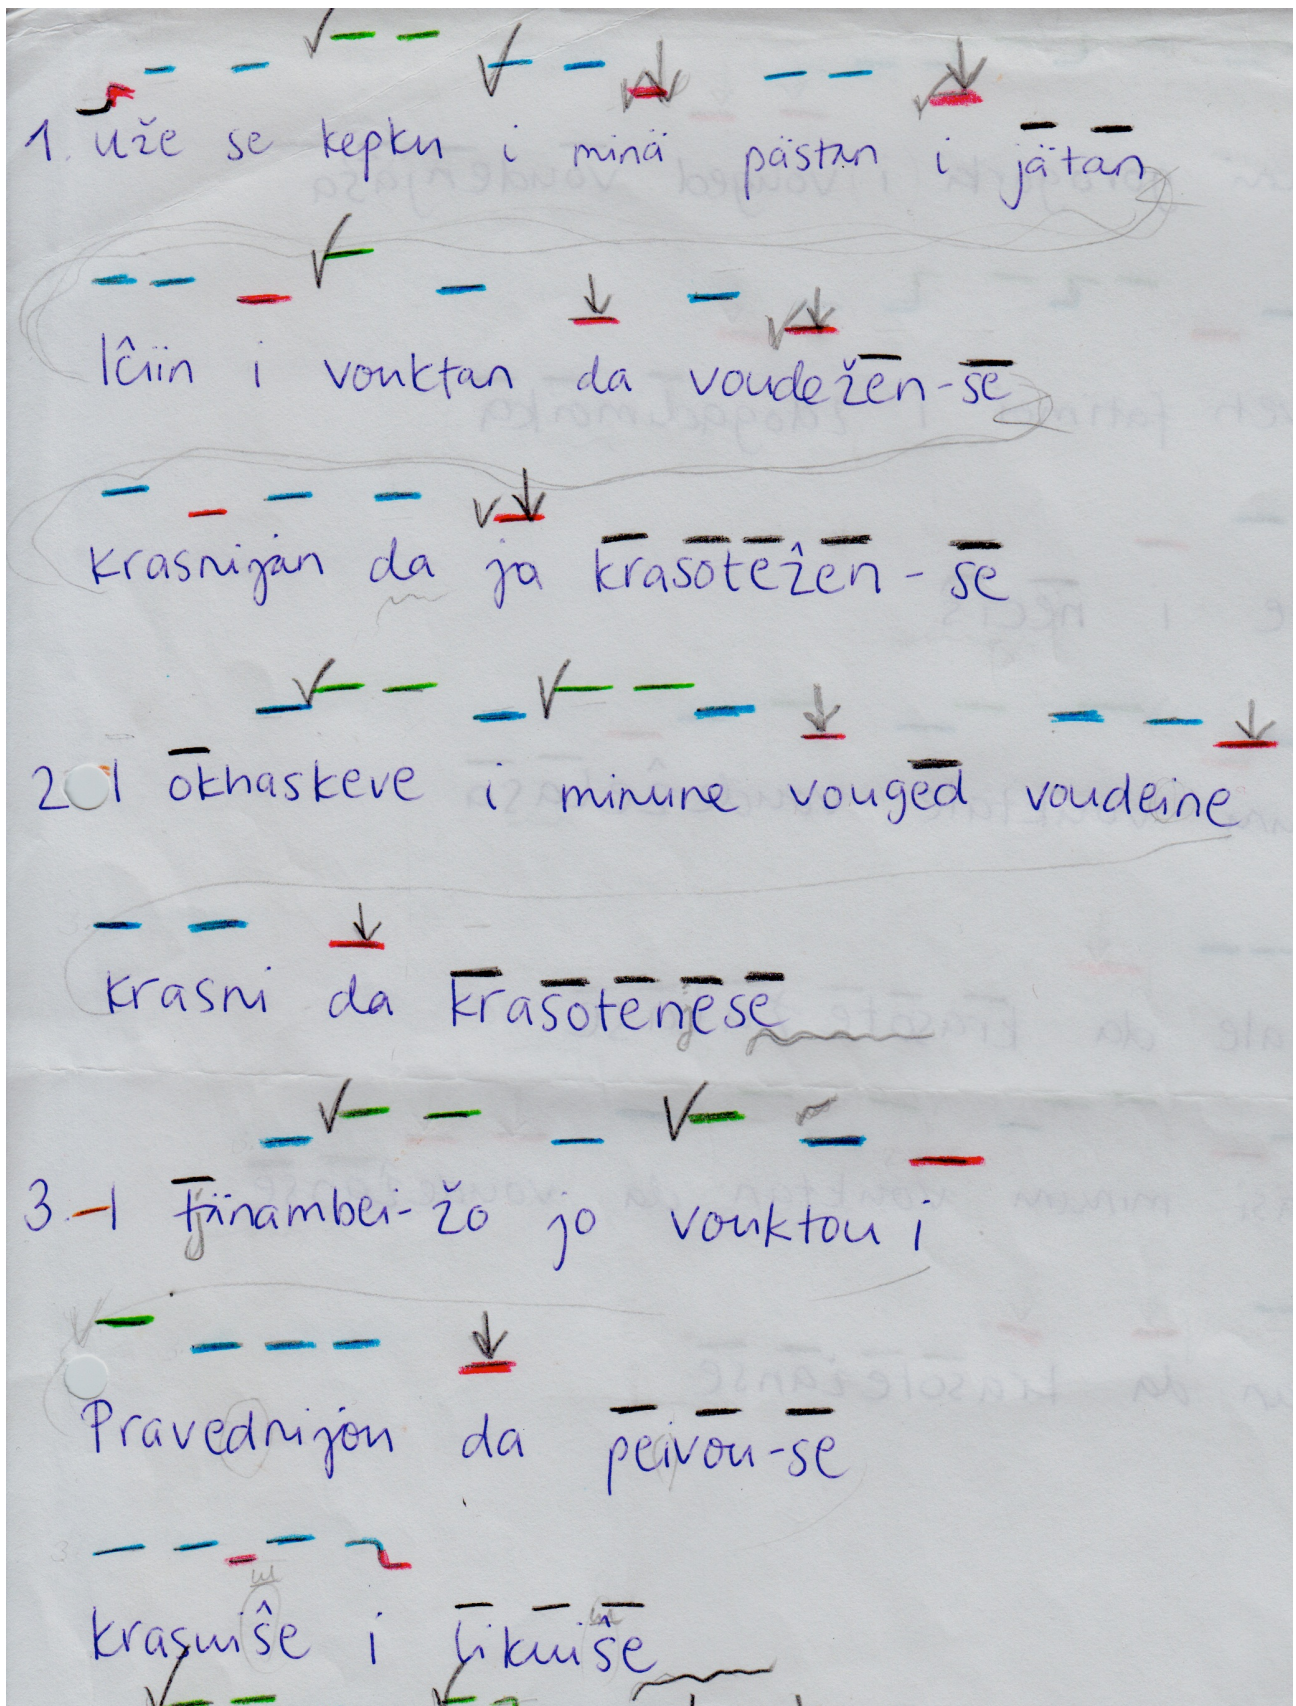 1. uže se kepku i minä pästan i jätan
Ičiin i vouktan da voudežen-se
krasnijan da ja krasotežen-se
2. I okhaskeve i minune vouged voudeine
krasni da krasotenese
3. I tjänambei-žo jo vouktou i
Pravednijou da peivou-se
krasniše i likniše